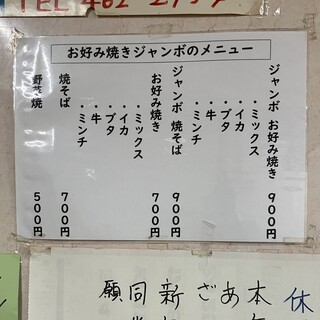 TEL 462
お好み焼きジャンボのメニュー
ジャンボ お好み焼き 900円
・ミックス
・イカ
・ブタ
・牛
・ミンチ
ジャンボ 焼そば 900円
お好み焼き 700円
・ミックス
・イカ
・ブタ
・牛
・ミンチ
焼そば 700円
野菜焼 500円
休
本
あ
ざ
新
同
願